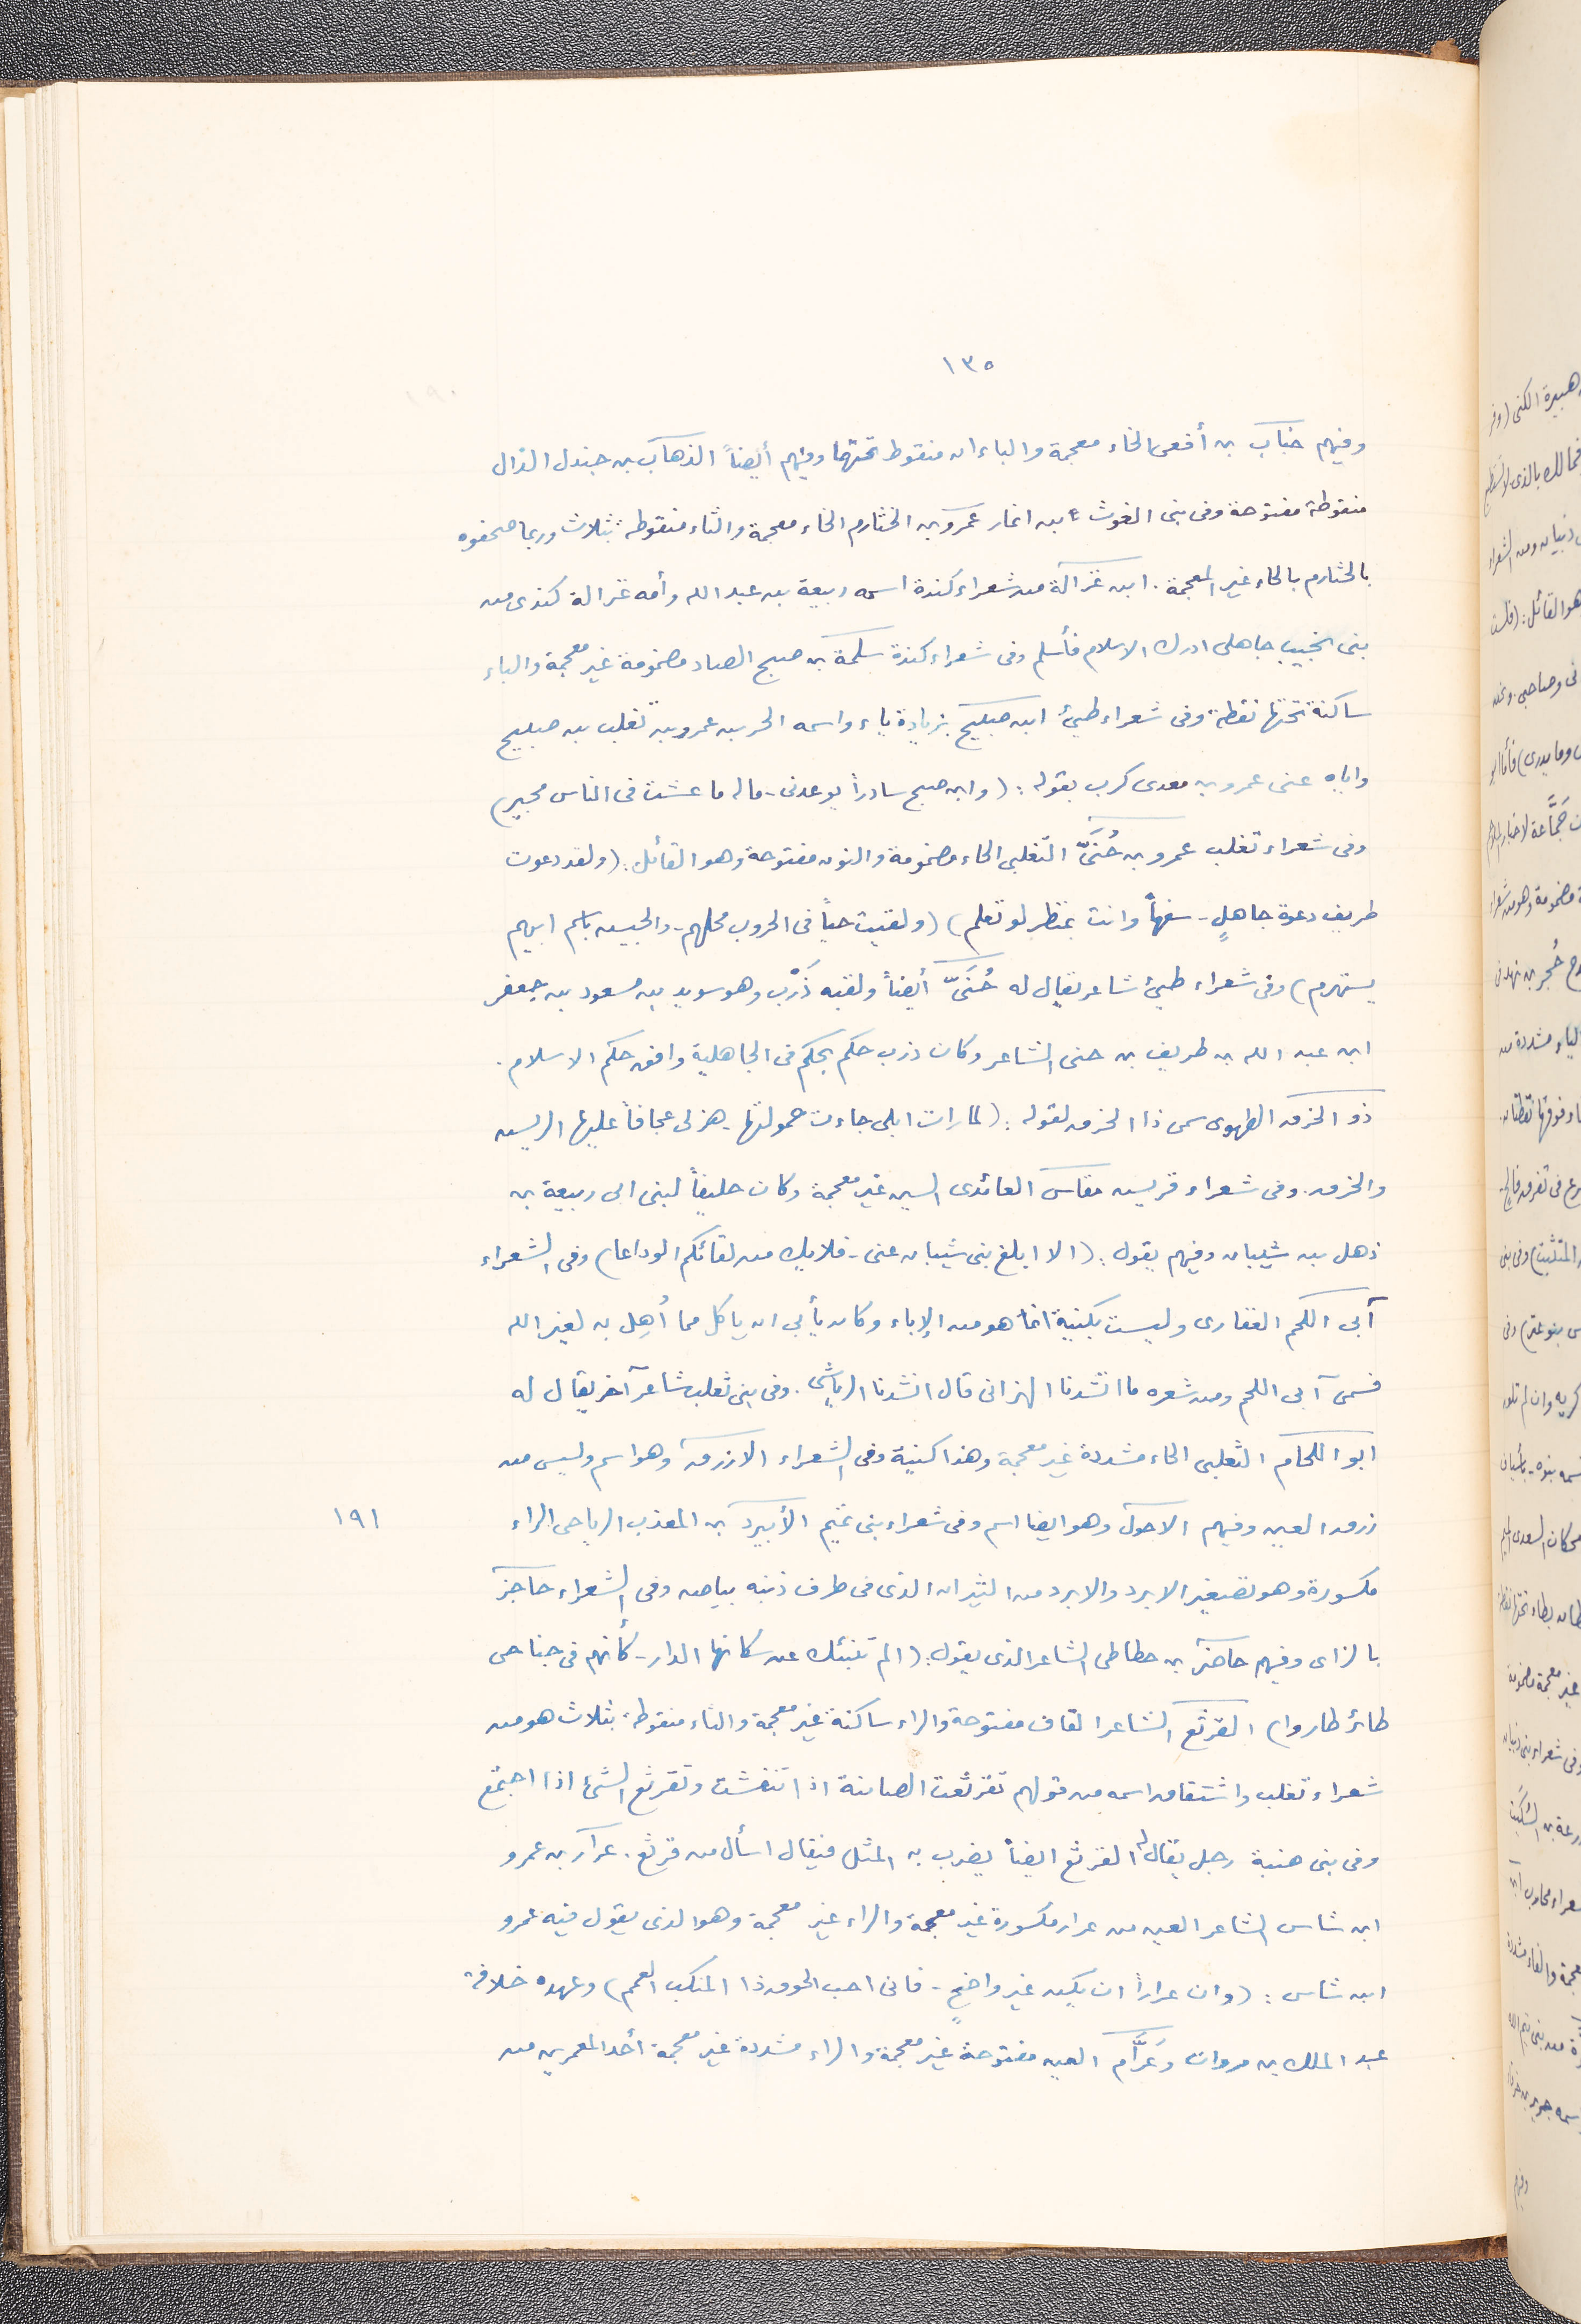 ١٣٥
وفيهم خباب بن أفعى الخاء معجمة والباءان منقوط تحتها وفيهم أيضاً الذهاب بن جندل الذال
منقوطة مفتوحة وفى بنى الغوث بن انمار عمرو بن الخثارم الخاء معجمة والثاء منقوطه بثلاث وربما صحفوه
بالحثارم بالحاء غير المعجمة. ابن غزالة من شعراء كندة اسمه ربيعة بن عبد الله وأمه غزالة كندى من
بنى جاهلى ادرك الاسلام فأسلم وفى شعراء كندة سلمة بن صبح الصاد مضمومة غير معجمة والباء
ساكنة تحتها نقطة وفى شعراء طيئ ابن صبيح بزيادة ياء واسمه الحر بن عمرو بن ثعلب بن صبيح
واياه عنى عمرو بن معدى كرب بقوله: (وابن صبح سادراً يوعدنى - ماله ما عشت فى الناس مجير)
وفى شعراء تغلب عمرو بن حُنَىّ التغلبى الحاء مضمومة والنون مفتوحة وهو القائل: (ولقد دعوت
طريف دعوة جاهلٍ - سفهاً وانت بمنظر لو تعلم) (ولقيت حياً فى الحروب محلهم - والجيش باسم ابيهم
يستهزم) وفى شعراء طيئ شاعر يقال له حُنَىّ أيضاً ولقبه ذَرْب وهو سويد بن مسعود بن جعفر
ابن عبد الله بن طريف بن حنى الشاعر وكان ذرب حكم بحكم فى الجاهلية وافق حكم الاسلام.
ذو الخرق الطهوى سمى ذا الخرق لقوله: (لما رات ابلى جاءت حمولتها - هزلى عجافاً عليها الريش
والخرق. وفى شعراء قريش مقاس العائذى السين غير معجمة وكان حليفاً لبنى ابى ربيعة بن
ذهل بن شيبان وفيهم يقول: (الا ابلغ بنى شيبان عنى - فلا يك من لقائكم الوداعا) وفى الشعراء
آبى اللحم الغفارى وليست بكنية انما هو من الإباء وكان يأبى ان ياكل مما أُهِل به لغير الله
فسمى آبى اللحم ومن شعره ما انشدنا الهزانى قال انشدنا الرياشى. وفى بنى ثعلب شاعر آخر يقال له
ابو اللحام الثعلبى الحاء مشددة غير معجمة وهذا كنية وفى الشعراء الازرق وهو اسم وليس من
زرق العين وفيهم الاحول وهو ايضا اسم وفى شعراء بنى تميم الأبيرد بن المعذب الرياحى الراء
١٩١
مكسورة وهو تصغير الابرد والابرد من الثيران الذى فى طرف ذنبه بياض وفى الشعراء حاجز
بالزاى وفيهم حاضر بن حطاطى الشاعر الذى يقول: (الم تنبئك عن سكانها الدار - كأنهم فى جناحى
طائر طاروا) القرثع الشاعر القاف مفتوحة والراء ساكنة غير معجمة والثاء منقوطة بثلاث هو من
شعراء تغلب واشتقاق اسمه من قولهم تقرثعت الضائنة اذا تنفشت وتقرثع الشئ اذا اجتمع
وفى بنى ضبة رجل يقال له القرثع ايضاً يضرب به المثل فيقال اسأل من قرثع. عرار بن عمرو
ابن شاس الشاعر العين من عرار مكسورة غير معجمة والراء غير معجمة وهو الذى يقول فيه عمرو
ابن شاس: (وان عراراً ان يكن غير واضحٍ - فانى احب الجون ذا المنكب العمم) وعهده خلافة
عبد الملك بن مروان وعَرَّام العين مفتوحة غير معجمة والراء مشددة غير معجمة أحد المعمرين من